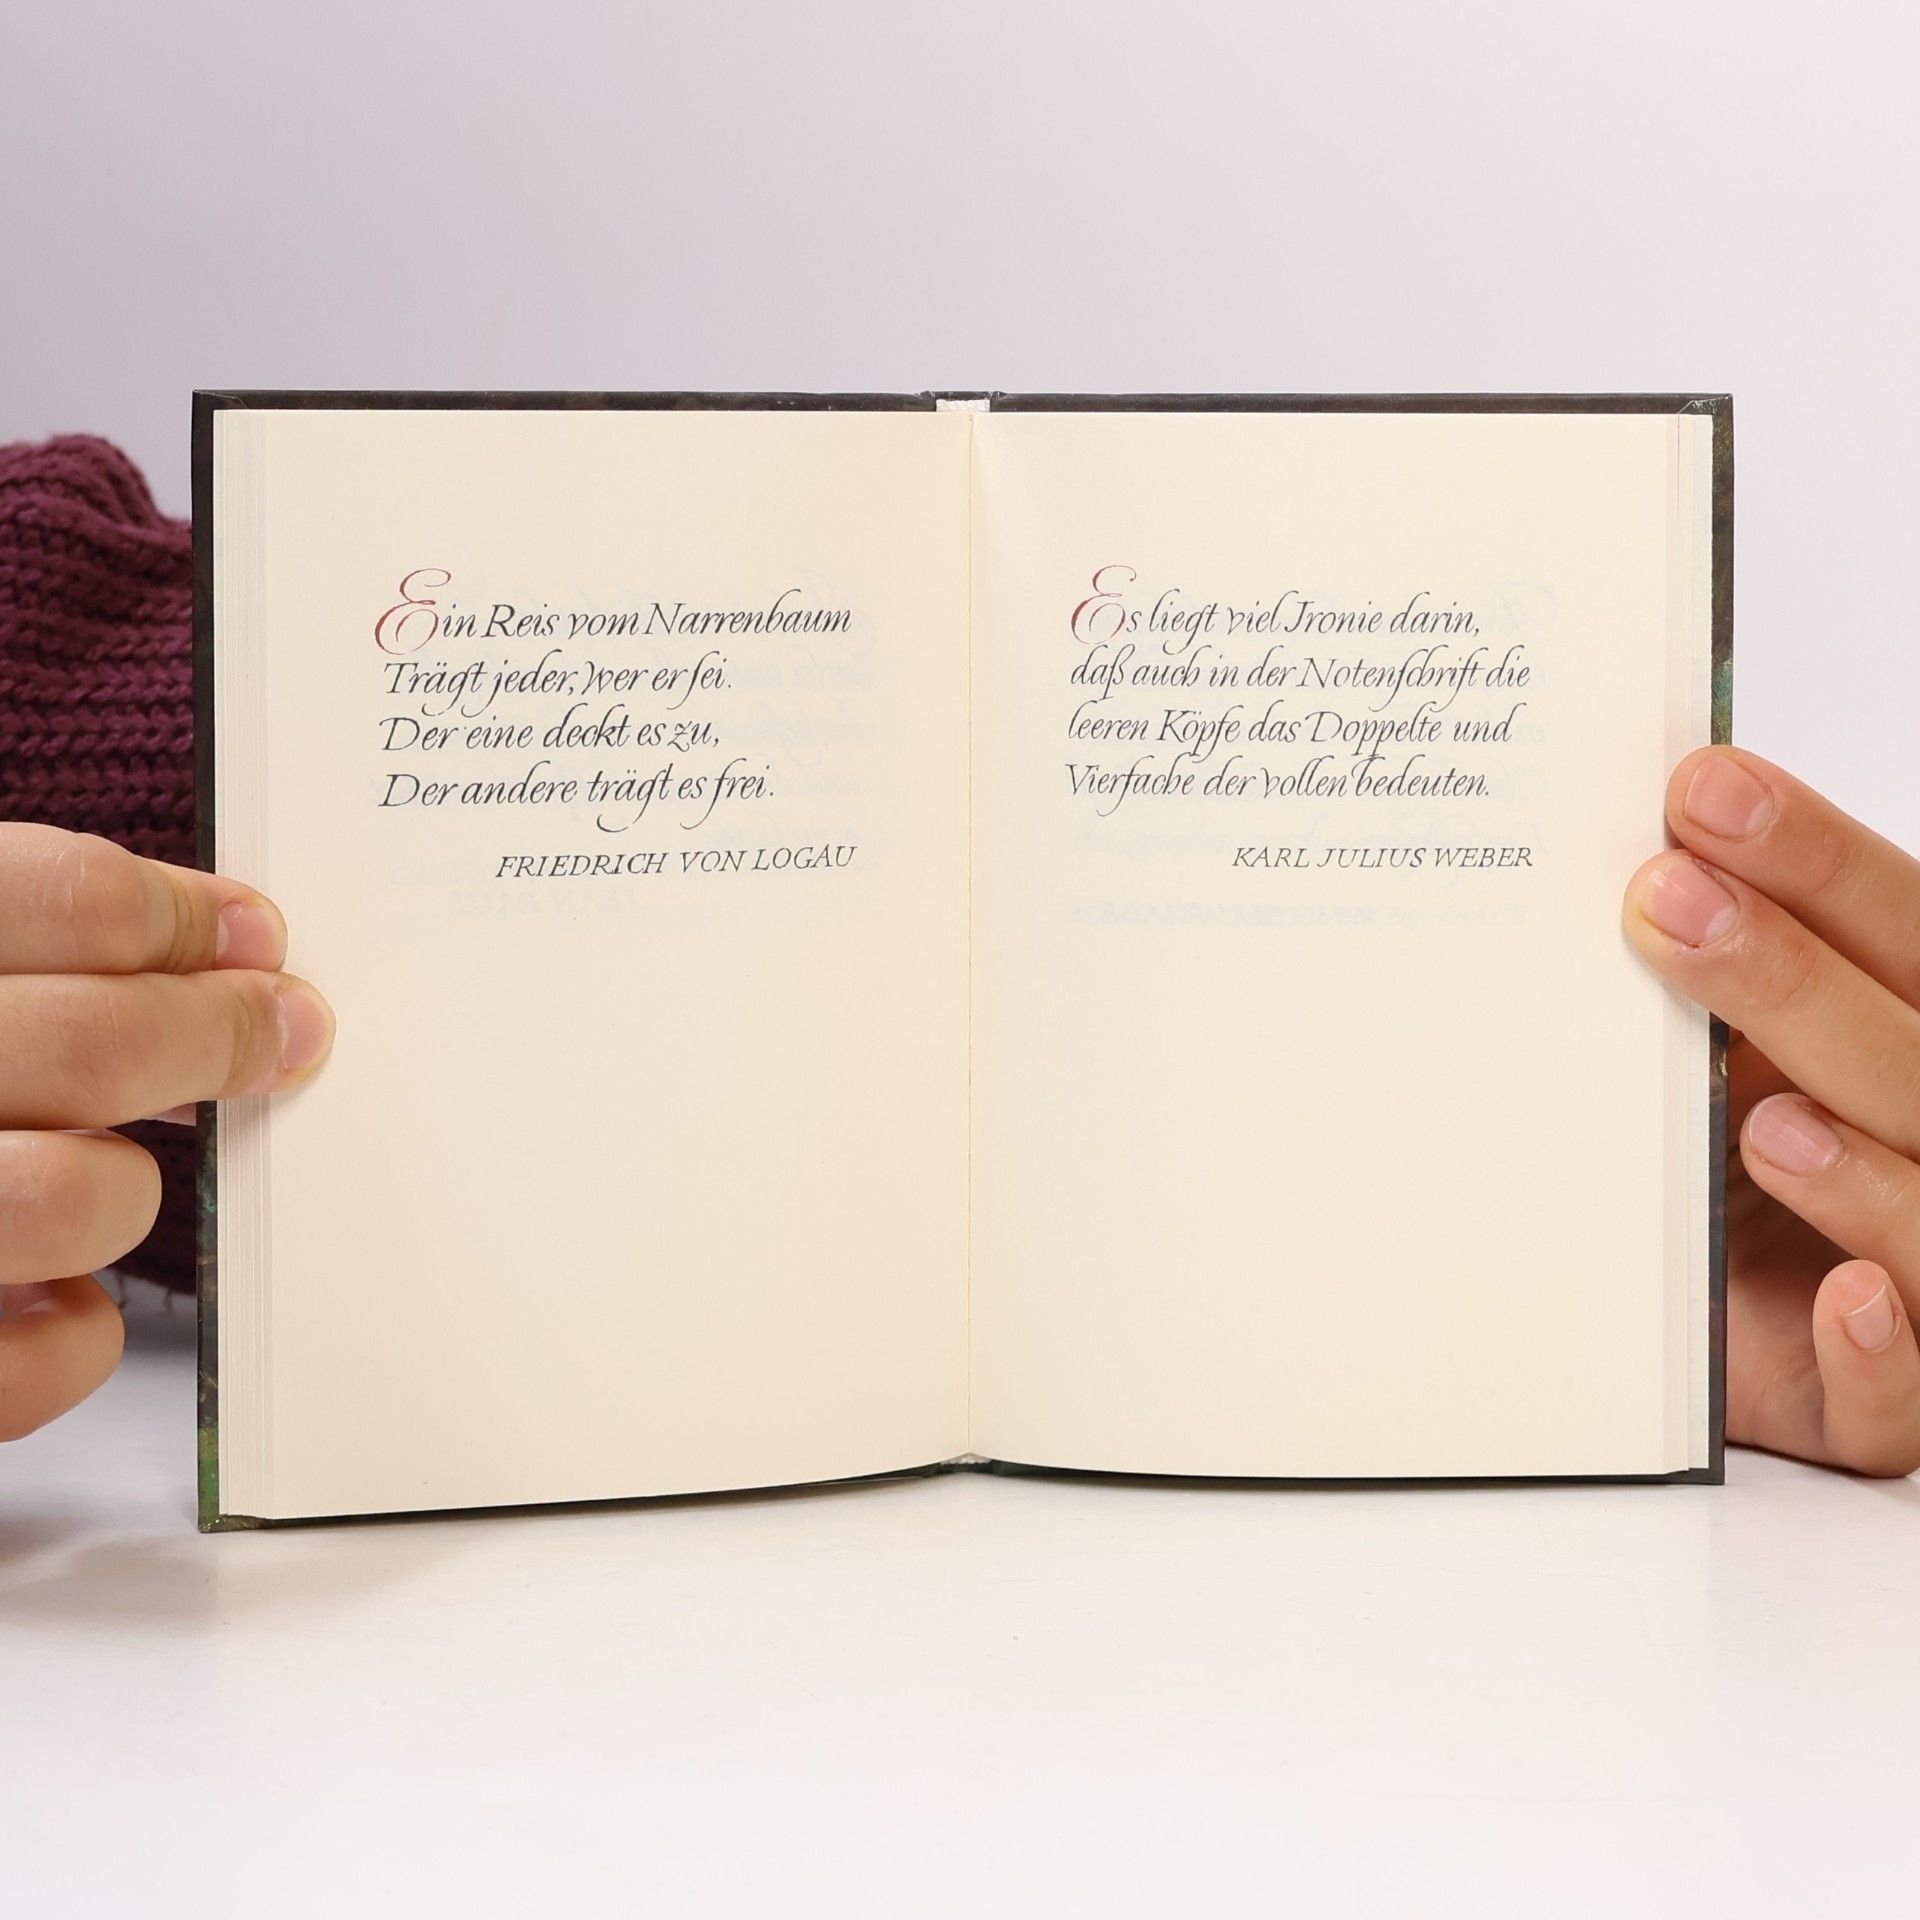 Ein Reis vom Narrenbaum
Trägt jeder, wer er sei.
Der eine deckt es zu,
Der andere trägt es frei.
FRIEDRICH VON LOGAU
Es liegt viel Jronie darin,
daß auch in der Notenschrift die
leeren Köpfe das Doppelte und
Vierfache der vollen bedeuten.
KARL JULIUS WEBER